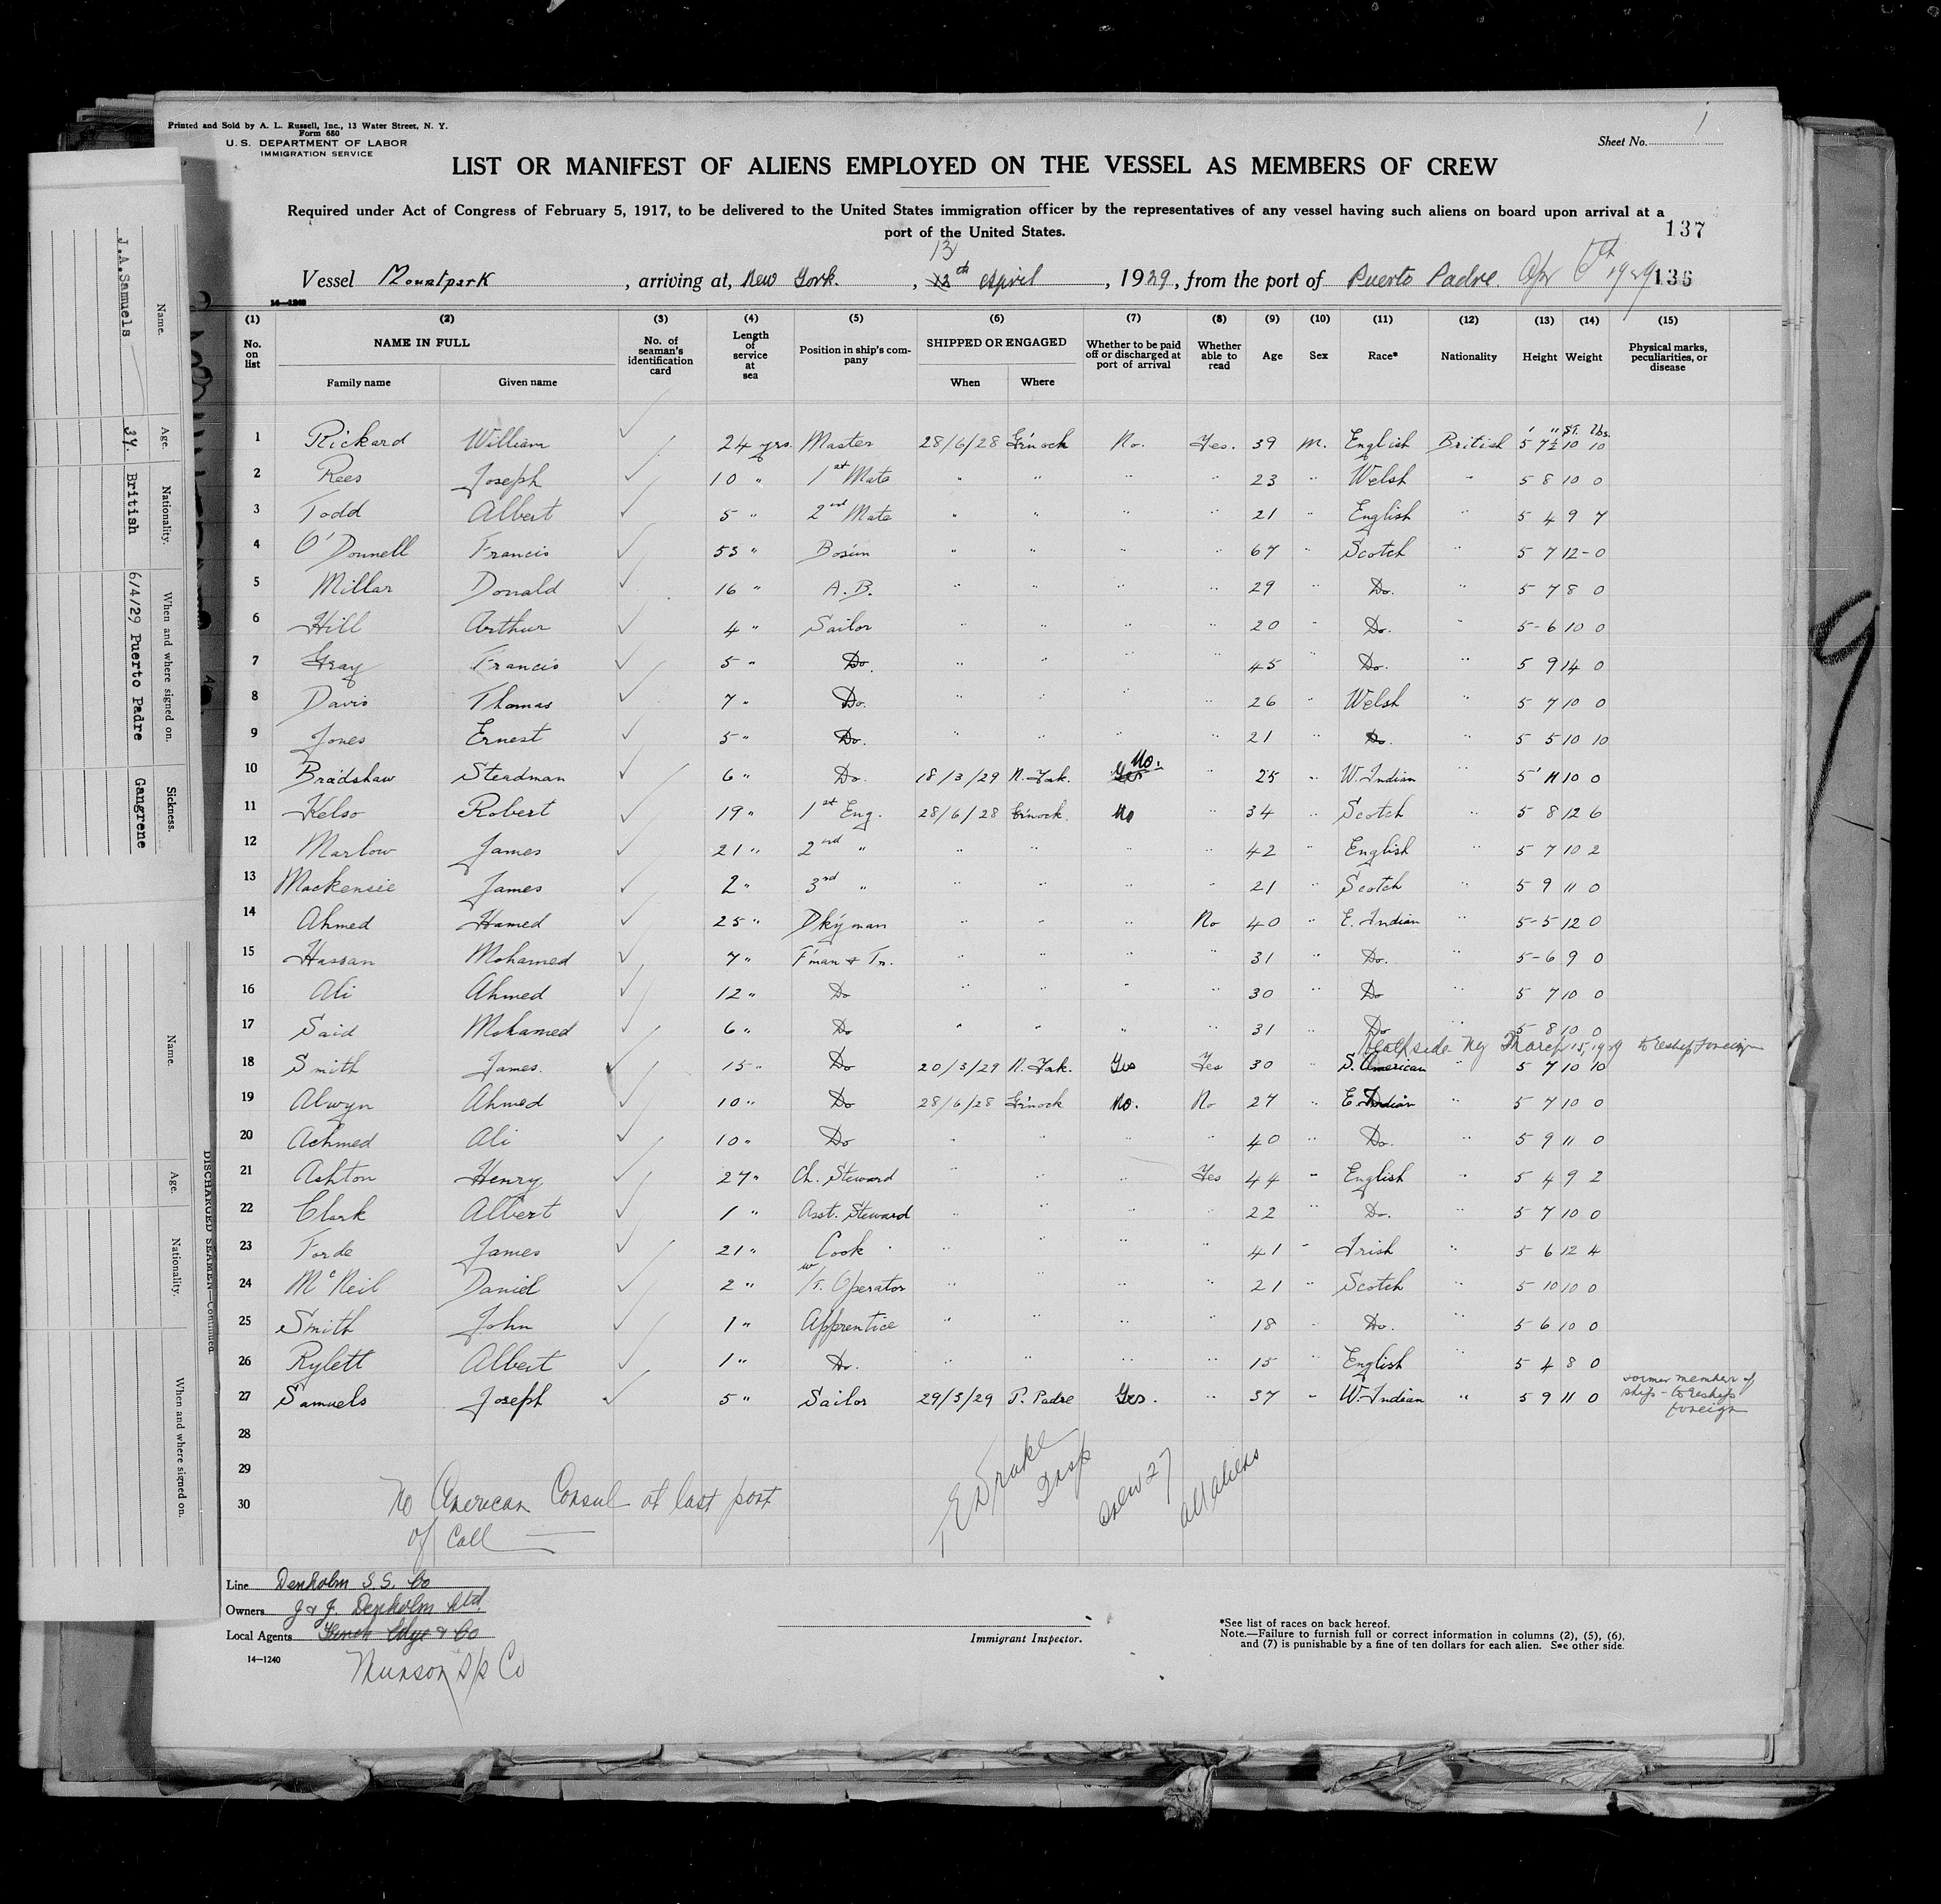 Printed and Sold by A. L. Russell, Inc., 13 Water Street, N. Y.
Form 680
U. S. DEPARTMENT OF LABOR
IMMIGRATION SERVICE
Sheet No. 1
LIST OR MANIFEST OF ALIENS EMPLOYED ON THE VESSEL AS MEMBERS OF CREW
Required under Act of Congress of February 5, 1917, to be delivered to the United States immigration officer by the representatives of any vessel having such aliens on board upon arrival at a
port of the United States.
137
13
Vessel Mountpark, arriving at, New York., 12th April, 1929, from the port of Puerto Padre. Apr 6th 1929 136
14—1240
(1) (2) (3) (4) (5) (6) (7) (8) (9) (10) (11) (12) (13) (14) (15)
No. on list NAME IN FULL Family name Given name No. of seaman's identification card Length of service at sea Position in ship's company SHIPPED OR ENGAGED When Where Whether to be paid off or discharged at port of arrival Whether able to read Age Sex Race* Nationality Height Weight Physical marks, peculiarities, or disease
' " St. lbs.
1 Rickard William 24 yrs. Master 28/6/28 G'nock No. Yes. 39 M. English British 5 7½ 10 10
2 Rees Joseph 10 " 1st Mate " " " " 23 " Welsh " 5 8 10 0
3 Todd Albert 5 " 2nd Mate " " " " 21 " English " 5 4 9 7
4 O'Donnell Francis 53 " Bos'un " " " " 67 " Scotch " 5 7 12-0
5 Millar Donald 16 " A.B. " " " " 29 " Do. " 5 7 8 0
6 Hill Arthur 4 " Sailor " " " " 20 " Do. " 5-6 10 0
7 Gray Francis 5 " Do. " " " " 45 " Do. " 5 9 14 0
8 Davis Thomas 7 " Do. " " " " 26 " Welsh " 5 7 10 0
9 Jones Ernest 5 " Do. " " " " 21 " Do. " 5 5 10 10
10 Bradshaw Steadman 6 " Do. 18/3/29 N. York. Yes No. " 25 " W. Indian 5' 11 10 0
11 Kelso Robert 19 " 1st Eng. 28/6/28 G'nock. No " 34 " Scotch " 5 8 12 6
12 Marlow James 21 " 2nd " " " " " 42 " English " 5 7 10 2
13 Mackensie James 2 " 3rd " " " " " 21 " Scotch " 5 9 11 0
14 Ahmed Hamed 25 " Dky'man " " " No 40 " E. Indian " 5-5 12 0
15 Hassan Mohamed 7 " F'man & Tr. " " " " 31 " Do. " 5-6 9 0
16 Ali Ahmed 12 " Do " " " " 30 " Do " 5 7 10 0
17 Said Mohamed 6 " Do " " " " 31 " Do " 5 8 10 0
NY March 15, 1929 to reship foreign
18 Smith James. 15 " Do 20/3/29 N. York. Yes Yes 30 " S. American " 5 7 10 10
19 Alwyn Ahmed 10 " Do 28/6/28 G'nock No. No 27 " E. Indian " 5 7 10 0
20 Achmed Ali 10 " Do " " " " 40 " Do. " 5 9 11 0
21 Ashton Henry 27 " Ch. Steward " " " Yes 44 " English " 5 4 9 2
22 Clark Albert 1 " Asst. Steward " " " " 22 " Do. " 5 7 10 0
23 Forde James 21 " Cook " " " " 41 " Irish " 5 6 12 4
24 McNeil Daniel 2 " W/T. Operator " " " " 21 " Scotch " 5 10 10 0
25 Smith John 1 " Apprentice " " " " 18 " Do. " 5 6 10 0
26 Rylett Albert 1 " Do. " " " " 15 " English " 5 4 8 0
27 Samuels Joseph 5 " Sailor 29/3/29 P. Padre Yes. " 37 " W. Indian " 5 9 11 0 former member of
ship - to reship
foreign
28
29
30
No American Consul at last port
of call
E Drake
Insp
Crew 27
all aliens
Line Denholm S.S. Co
Owners J & J. Denholm Ltd.
Local Agents Edye & Co
14—1240
Munson S/S Co
Immigrant Inspector.
*See list of races on back hereof.
Note.—Failure to furnish full or correct information in columns (2), (5), (6),
and (7) is punishable by a fine of ten dollars for each alien. See other side.
9
Name. Age. Nationality. When and where signed on. Sickness.
J.A.Samuels 37. British 6/4/29 Puerto Padre Gangrene
DISCHARGED SEAMEN—Continued.
Name. Age. Nationality. When and where signed on.